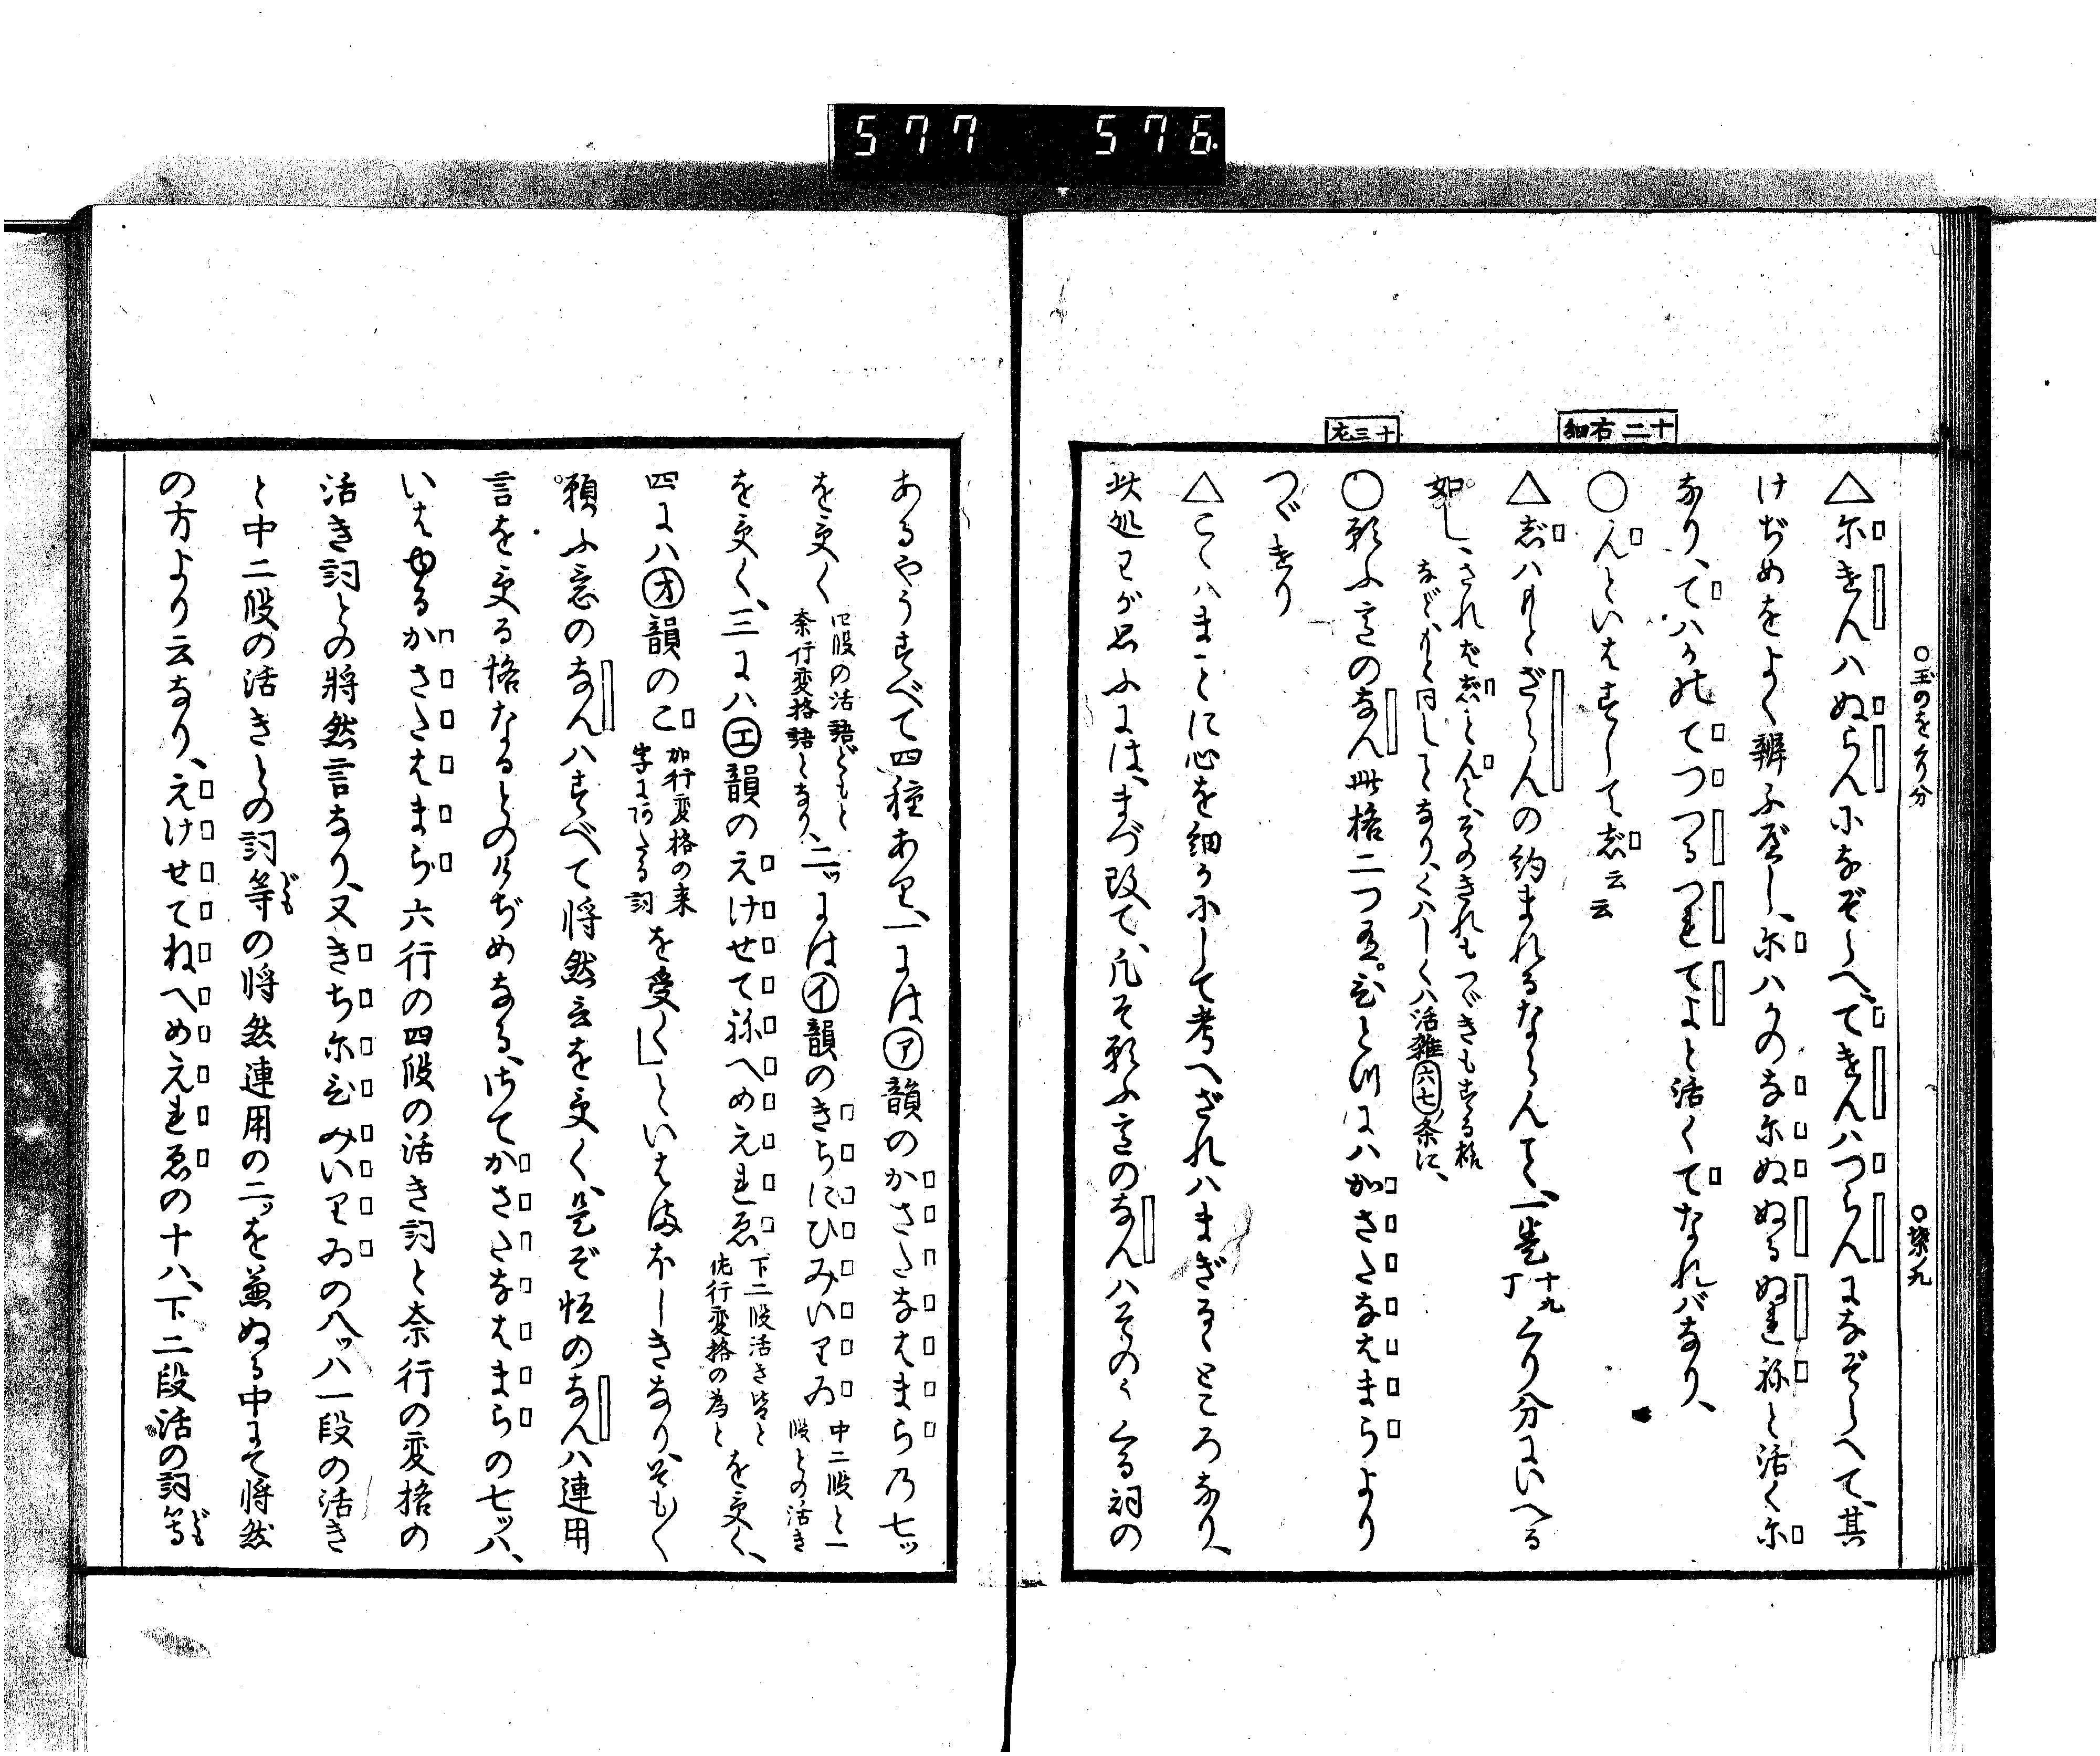 577 576
○玉のをくり分 ○柴九
十二右細
十三左
△尓きんハぬらん尓なぞらへ、てきんハつらんになぞらへて、其
けぢめをよく辨ふ べし、尓ハかのな尓ぬぬるぬれ祢と活く尓
なり、てハかれてつつるつれてよと活くてなれバなり、
○んといはずして志云云
△志ハもとざらんの約まれるならんと、一 十九丁くり分にいへる
如し、されど志とんと、そのきれもつゞきもする格
なども と同しことなり、くハしくハ活雑六七ノ条に、
○願ふ意のなん此格二つ といハかさたなはまらより
つゞけり
△こハまことに心を細かにして考へざれハまぎるゝところなり、
此処わが思ふには、まづ改て、凡そ願ふ意のなんハそのうくる詞の
あるやうすべて四種あり、一にはア韻のかさたなはまら乃七ッ
を受く 四段の活語どもと
奈行変格語となり、二ッにはイ韻のきちにひみいりゐ 中二段と一
段との活き
を受く、三にハエ韻のえけせて祢へめえれゑ 下二段活き皆と
佐行変格の為と を受く、
四にハオ韻のこ 加行変格の来
字にあたる詞 を受く」といはまほしきなり、そもく
願ふ意のなんハすべて将然言を受く、是ぞ恒のなんハ連用
言を受る格なるとのけぢめなる、さてかさたなはまらの七ッハ、
いはゆるかさたはまら六行の四段の活き詞と奈行の変格の
活き詞との將然言なり、又きち尓ひみいりゐの八ッハ一段の活き
と中二段の活きとの詞等の将然連用の二ッを兼ぬる中にて将然
の方より云なり、えけせてねへめえれゑの十ハ、下二段活の詞等